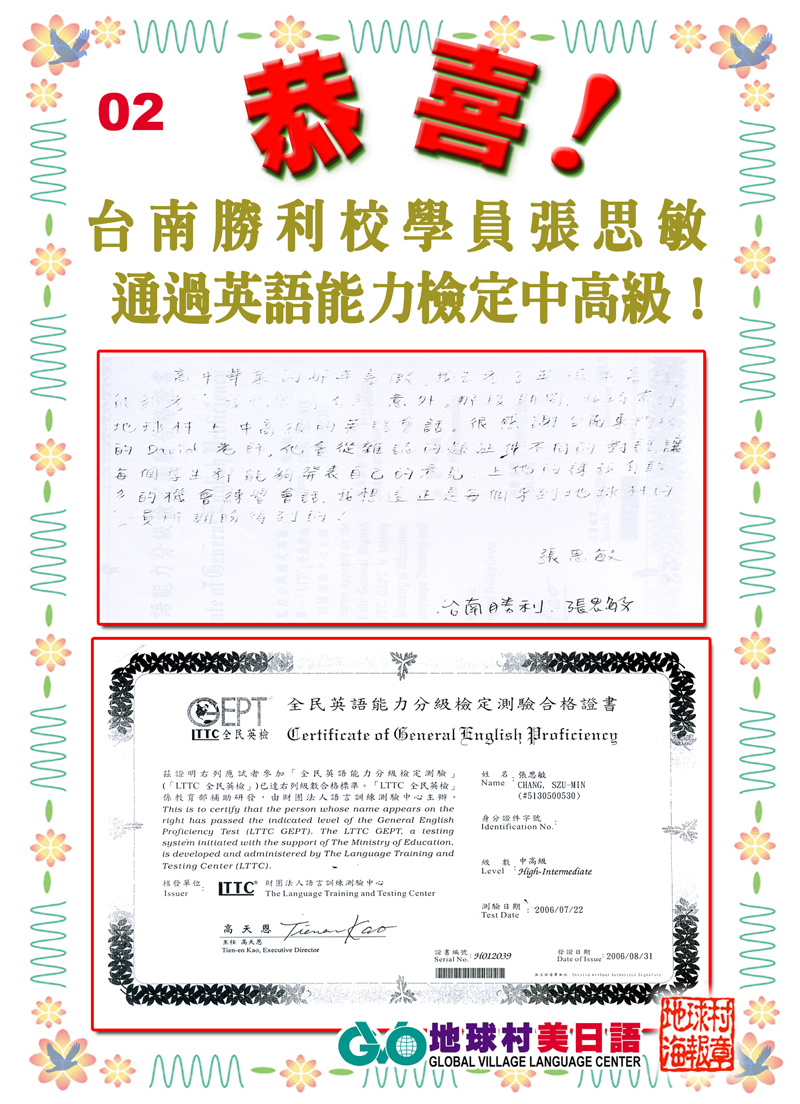 02
恭喜！
台南勝利校學員張思敏
通過英語能力檢定中高級！
高中畢業的那年暑假
意外。那段期間
地球村上中高級的英語會話。很感謝台南
的David老師，他會從雜誌的 不同的對話讓
每個學生都能夠發表自己的意見。上他的課
多的機會練習會話，我想這正是每個來到地球村的
員所期盼得到的！
張思敏
台南勝利．張思敏
GEPT
LTTC 全民英檢
全民英語能力分級檢定測驗合格證書
Certificate of General English Proficiency
茲證明右列應試者參加「全民英語能力分級檢定測驗」
(「LTTC 全民英檢」)已達右列級數合格標準。「LTTC 全民英檢」
係教育部補助研發，由財團法人語言訓練測驗中心主辦。
This is to certify that the person whose name appears on the
right has passed the indicated level of the General English
Proficiency Test (LTTC GEPT). The LTTC GEPT, a testing
system initiated with the support of The Ministry of Education,
is developed and administered by The Language Training and
Testing Center (LTTC).
核發單位：
Issuer
LTTC® 財團法人語言訓練測驗中心
The Language Training and Testing Center
高天恩 Tien-en Kao
主任 高天恩
Tien-en Kao, Executive Director
姓 名：張思敏
Name CHANG, SZU-MIN
(#5130500530)
身分證件字號：
Identification No.
級 數：中高級
Level High-Intermediate
測驗日期：2006/07/22
Test Date
證書編號：H012039
Serial No.
發證日期：2006/08/31
Date of Issue
Invalid without Authorized Signature
GVO 地球村美日語
GLOBAL VILLAGE LANGUAGE CENTER
地球村
海報章